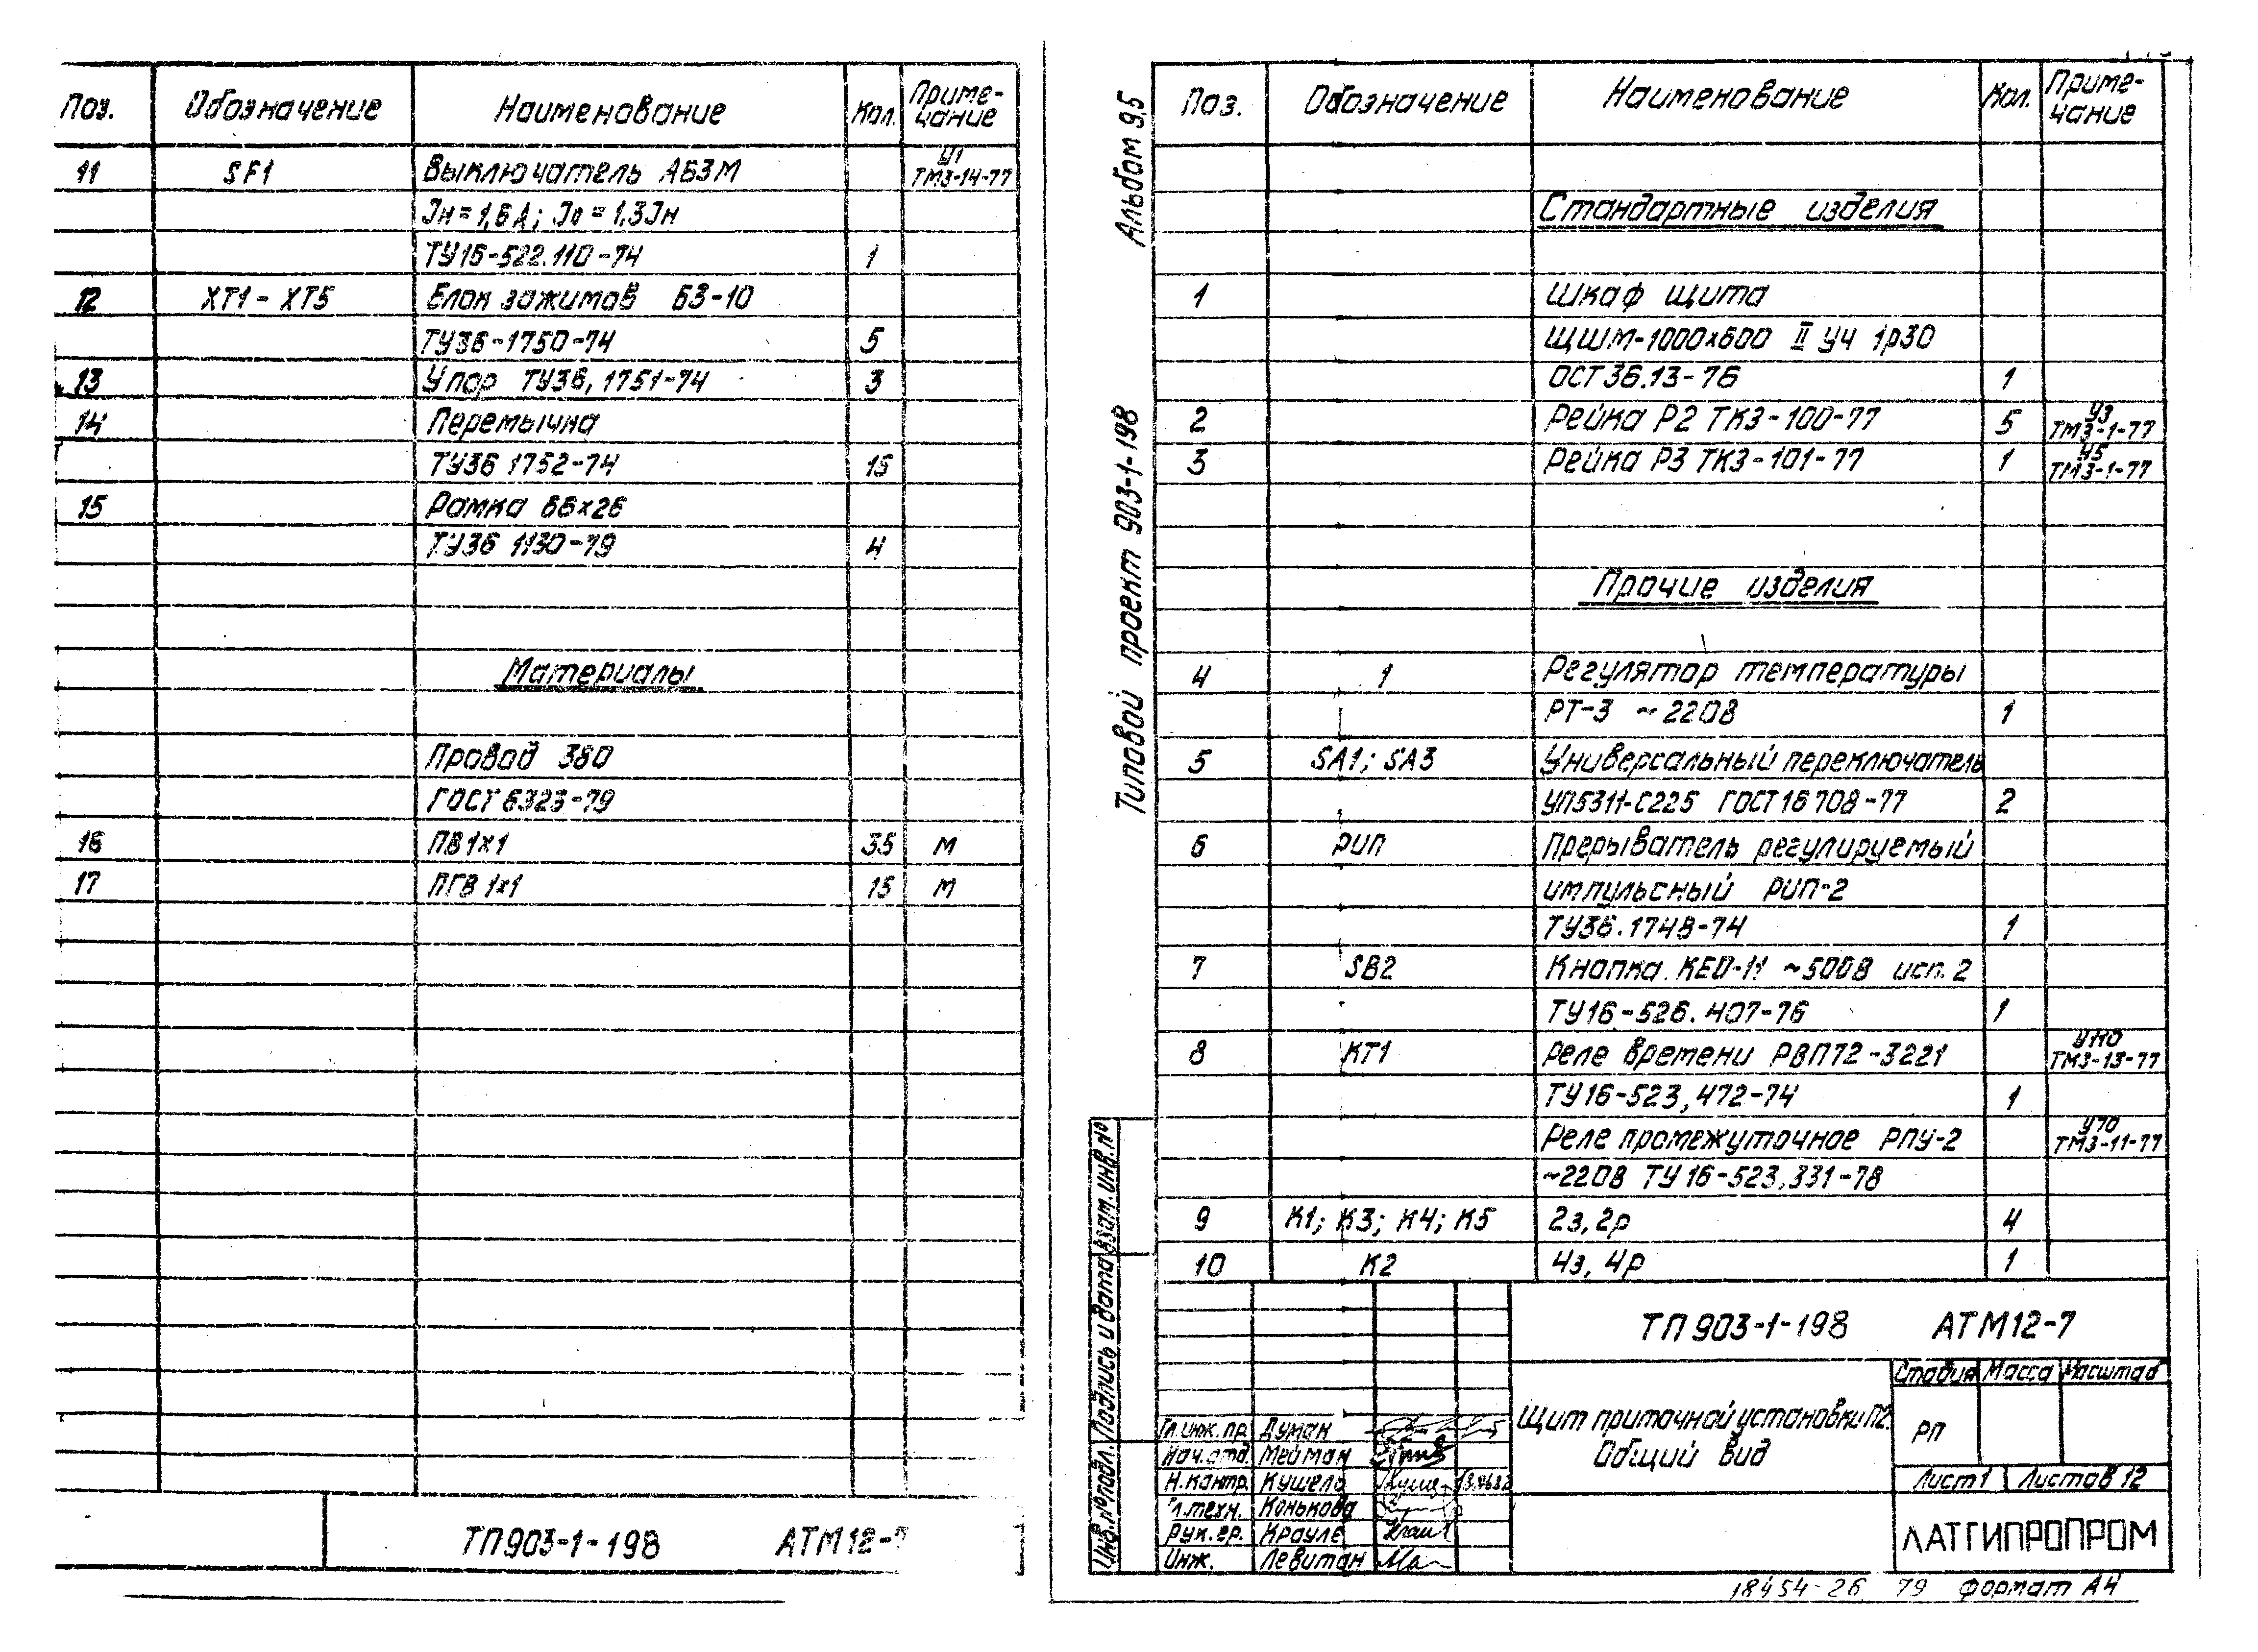 Поз. Обозначение Наименование Кол. Приме-
чание
11 SF1 Выключатель АБ3М У1
ТМ3-14-77
Jн=1,6А; Jо=1,3Jн
ТУ16-522.110-74 1
12 XT1-XT5 Блок зажимов БЗ-10
ТУ36-1750-74 5
13 Упор ТУ36,1751-74 3
14 Перемычка
ТУ36 1752-74 15
15 Рамка 66х26
ТУ36 1130-79 4
Материалы
Провод 380
ГОСТ 6323-79
16 ПВ1х1 35 м
17 ПГВ 1х1 15 м
ТП903-1-198 АТМ12-7
Альбом 9.5
Типовой проект 903-1-198
Поз. Обозначение Наименование Кол. Приме-
чание
Стандартные изделия
1 Шкаф щита
ЩШМ-1000х600 II У4 1р30
ОСТ36.13-76 1
2 Рейка Р2 ТК3-100-77 5 У3
ТМ3-1-77
3 Рейка Р3 ТК3-101-77 1 У5
ТМ3-1-77
Прочие изделия
4 1 Регулятор температуры
РТ-3 ~220В 1
5 SA1; SA3 Универсальный переключатель
УП5311-С225 ГОСТ16708-77 2
6 РИП Прерыватель регулируемый
импульсный РИП-2
ТУ36.1748-74 1
7 SB2 Кнопка КЕ0-11 ~500В исп. 2
ТУ16-526.407-76 1
8 КТ1 Реле времени РВП72-3221 У110
ТМ3-13-77
ТУ16-523,472-74 1
Реле промежуточное РПУ-2 У70
ТМ3-11-77
~220В ТУ16-523,331-78
9 К1; К3; К4; К5 2з, 2р 4
10 К2 4з, 4р 1
Инв.№подл. Подпись и дата Взам.инв.№
ТП903-1-198 АТМ12-7
Стадия Масса Масштаб
Щит приточной установки П2.
Общий вид
РП
Лист 1 Листов 12
ЛАТГИПРОПРОМ
Гл.инж.пр. Думан
Нач.отд. Мейман
Н.контр. Кушело
Гл.техн. Конькова
Рук.гр. Крауле
Инж. Левитан
18454-26 79 формат А4